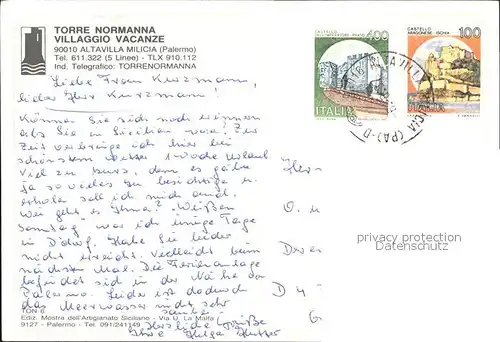 TORRE NORMANNA
VILLAGGIO VACANZE
90010 ALTAVILLA MILICIA (Palermo)
Tel. 611.322 (5 Linee) - TLX 910.112
Ind. Telegrafico: TORRENORMANNA
CASTELLO
DELL'IMPERATORE PRATO
400
ITALIA
CASTELLO
ARAGONESE ISCHIA
100
ITALIA
ALTAVILLA MILICIA (PA)
Liebe Frau Kurzmann,
lieber Herr Kurzmann!
Können Sie sich noch erinnern
als Sie in Sizilien
Zeit verbringe ich hier bei
schönstem Wetter Urlaub.
Viel zu kurz, denn es gäbe
ja so vieles zu besichtigen u.
erholen soll ich mich auch.
Wie geht es Ihnen? Weißen
Sonntag war ich einige Tage
in Habe Sie leider
nicht erreicht. Vielleicht beim
nächsten Mal. Die Ferienanlage
befindet sich in der Nähe von
Palermo. Leider ist dadurch
das Meerwasser nicht sehr
sauber.
Herzliche Grüße
Ihre Helga
Herr
O. u
D 4
6
privacy protection
Datenschutz
TON 6
Ediz. Mostra dell'Artigianato Siciliano - Via U. La Malfa
9127 - Palermo - Tel. 091/241149